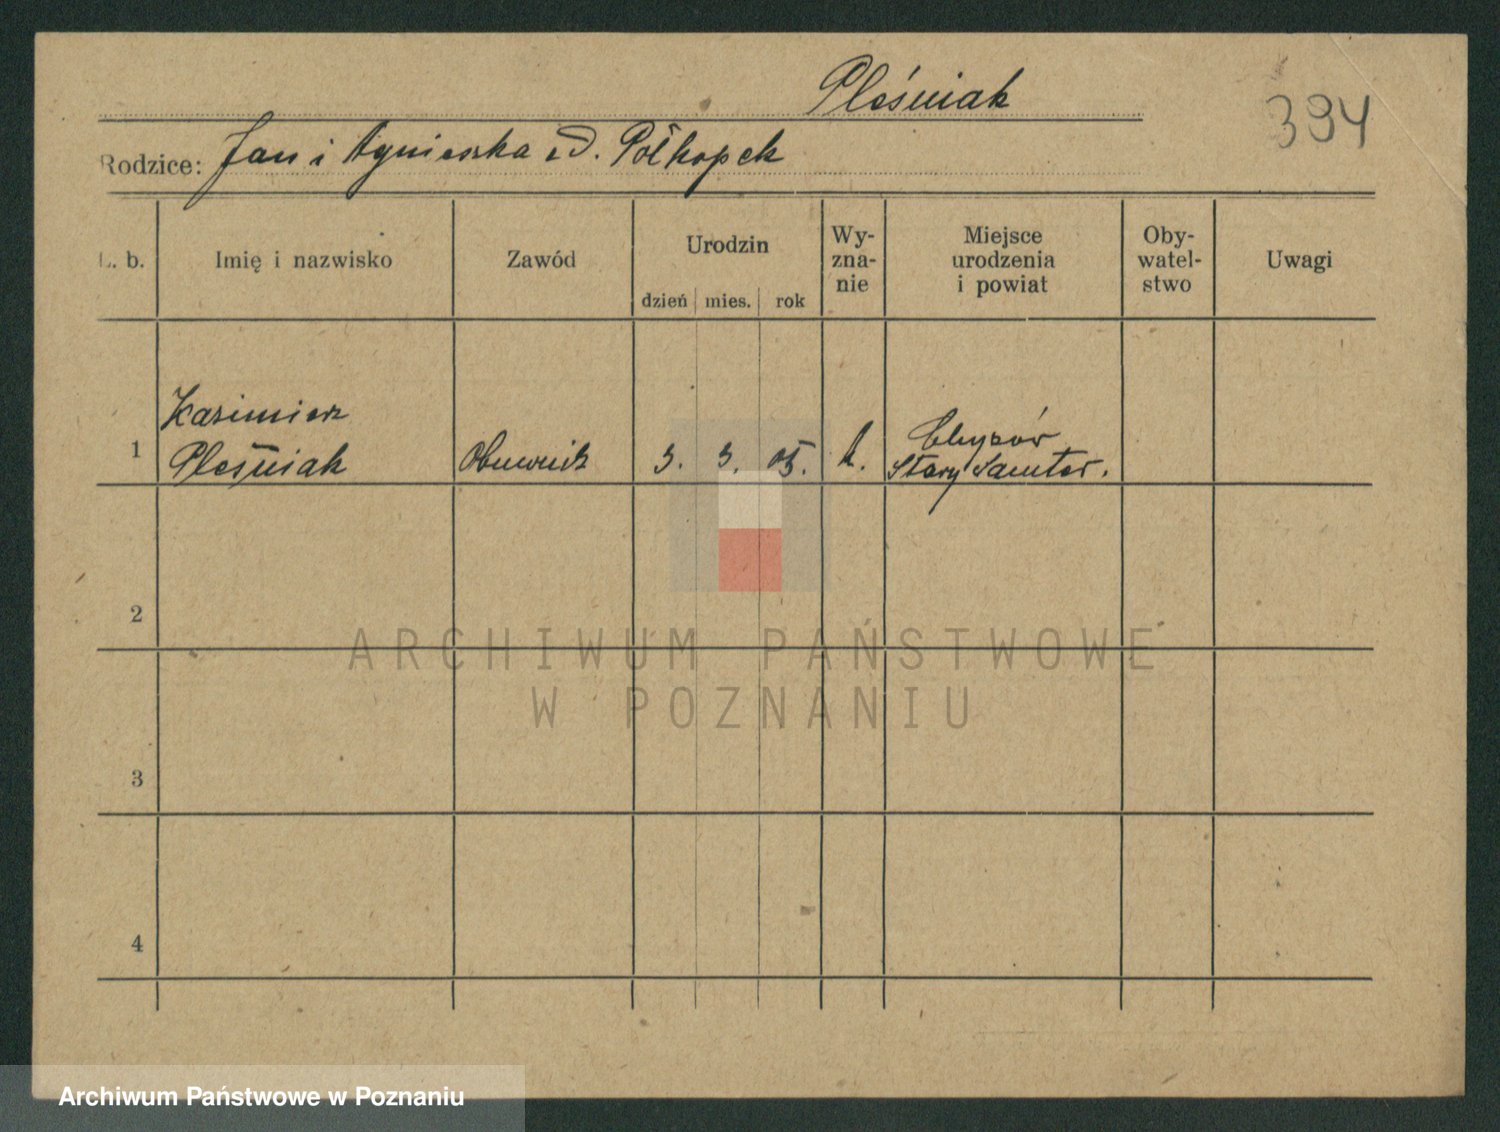 Pleśniak
394
Rodzice: Jan i Agnieszka z d. Półkopek
L. b. Imię i nazwisko Zawód Urodzin Wy-zna-nie Miejsce urodzenia i powiat Oby-watel-stwo Uwagi
dzień mies. rok
Kazimierz
1 Pleśniak Obuwnik 3. 3. 05. k.
Stary Samter.
2
ARCHIWUM PAŃSTWOWE
W POZNANIU
3
4
Archiwum Państwowe w Poznaniu